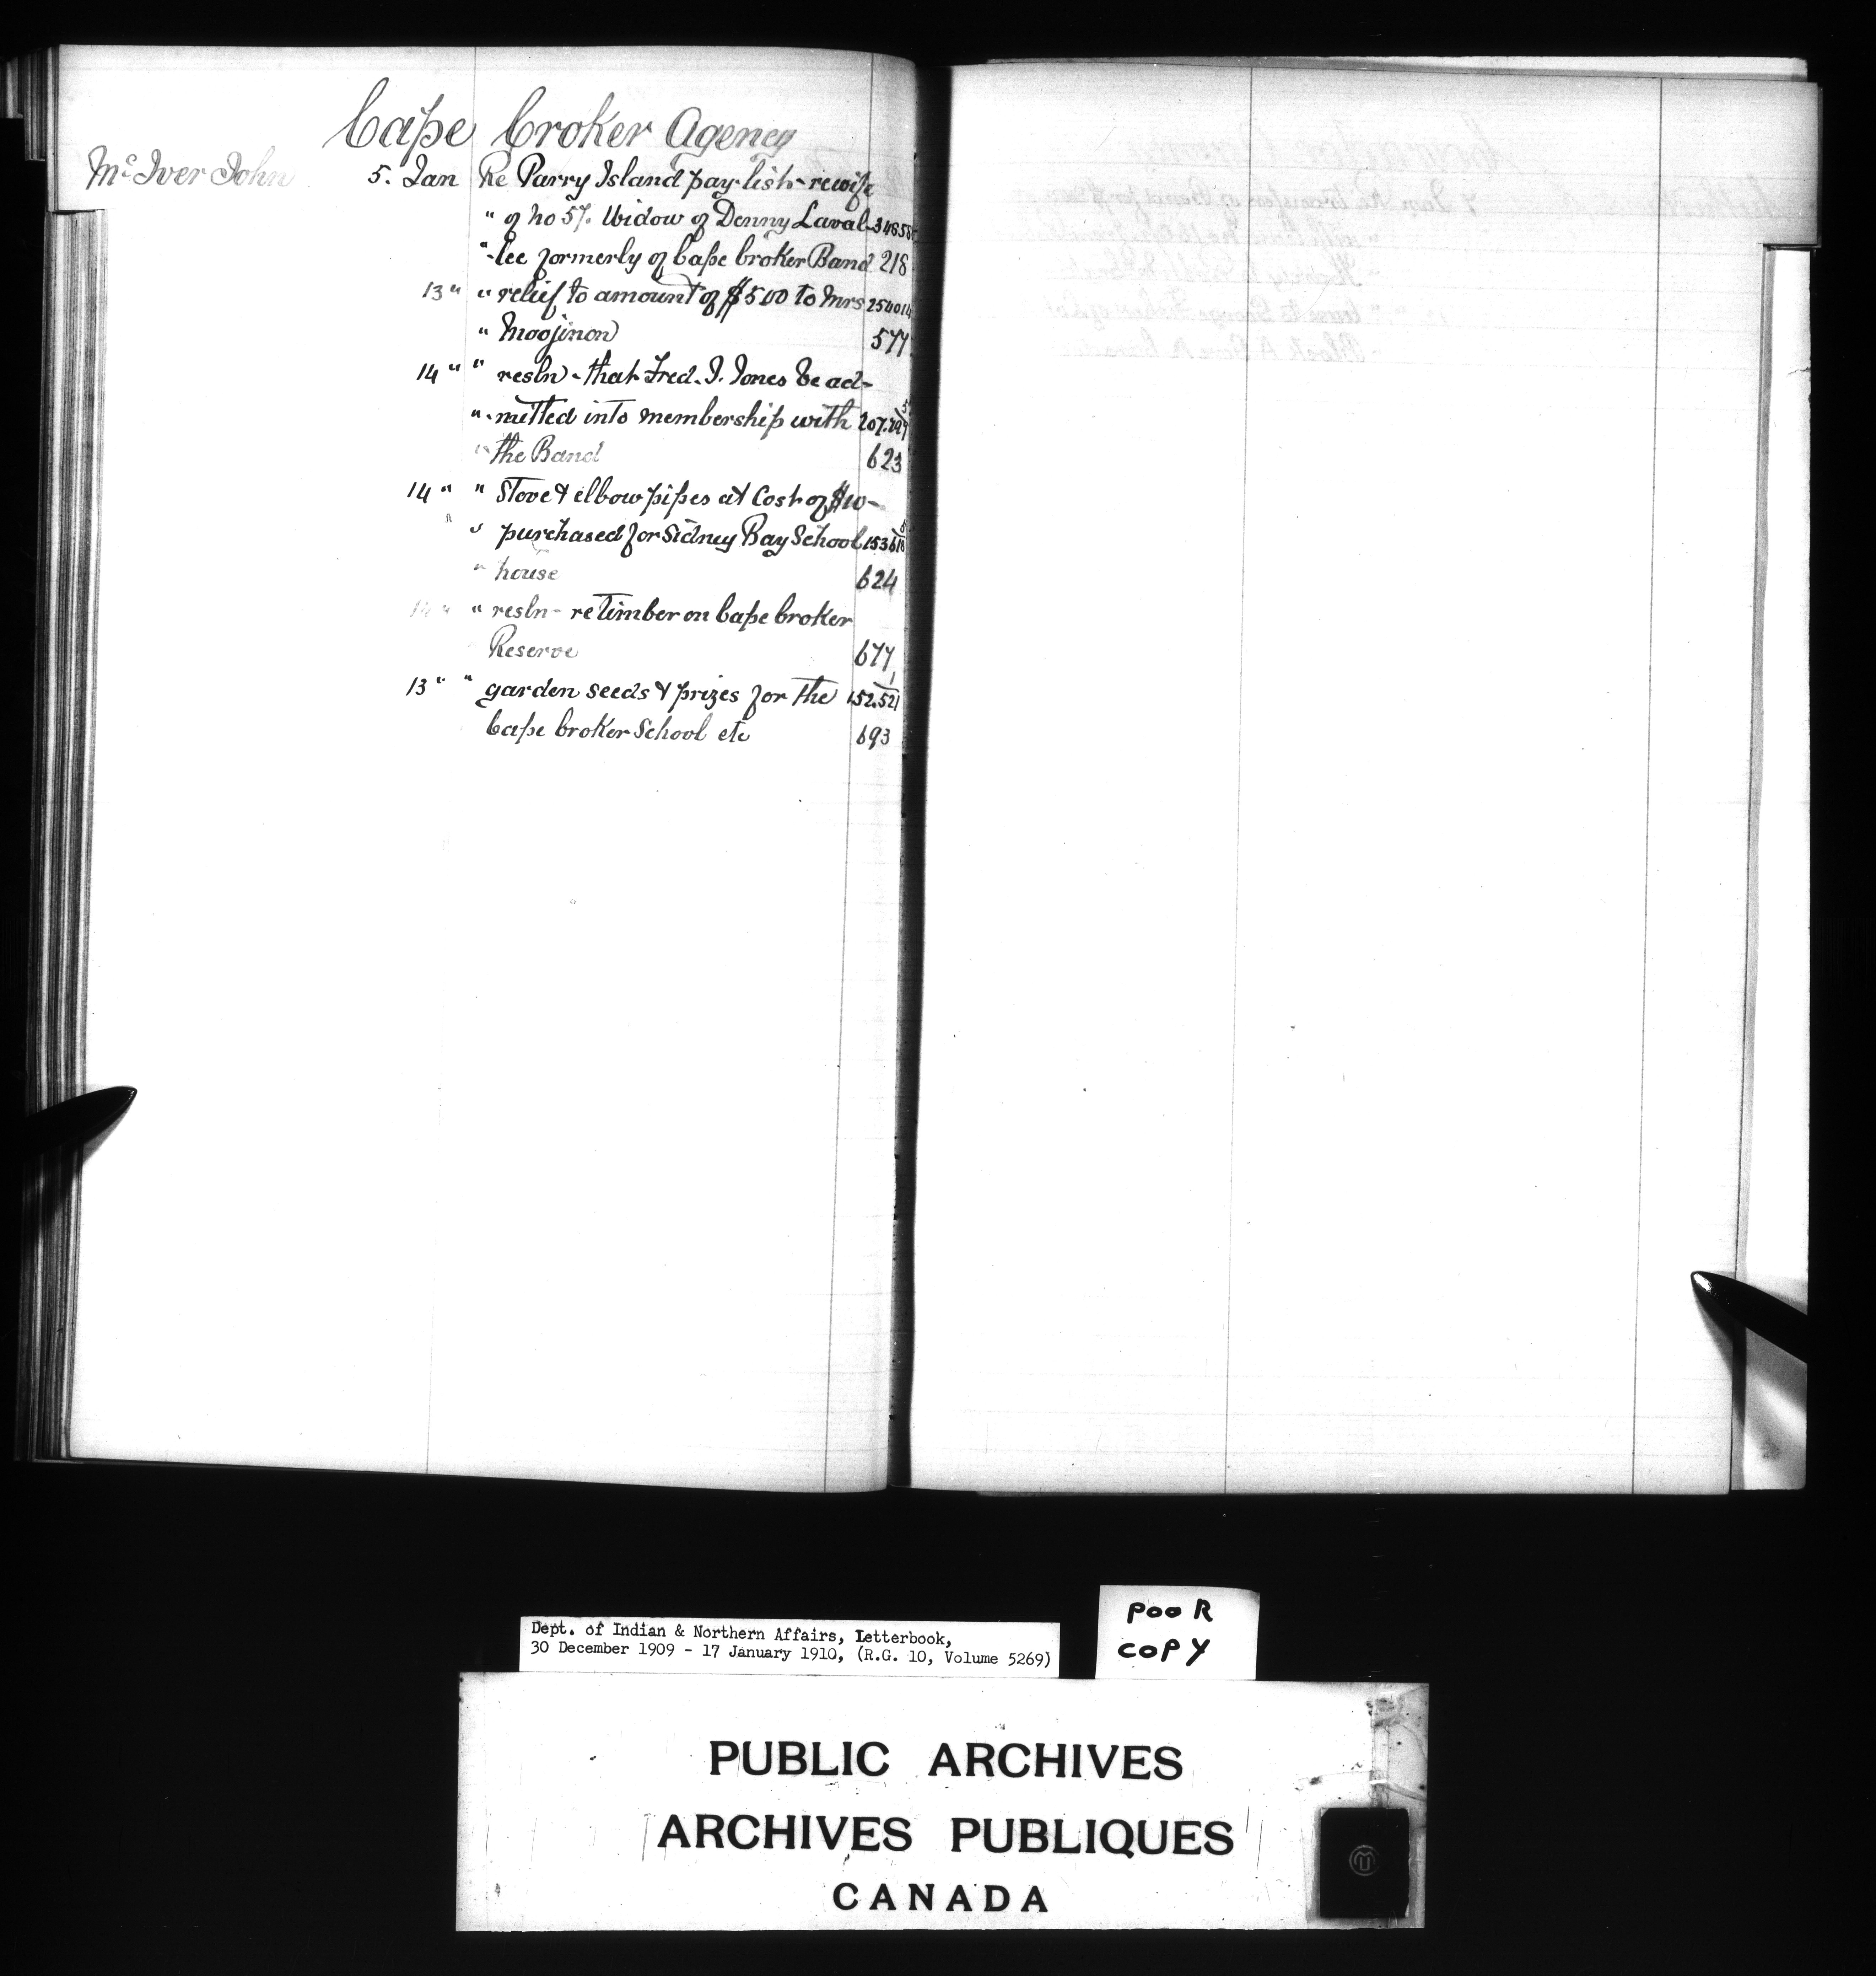 Cape Croker Agency
McIver John 5. Jan Re Parry Island pay-list-re wife
" of no 57. Widow of Denny Laval-
"-lee formerly of Cape Croker Band 218
13 " " relief to amount of $5.00 to Mrs 254014
" Moojinon 577
14 " " resln - that Fred. J. Jones be ad-
" -mitted into membership with
" the Band 623
14 " " Stove & elbow pipes at Cost of $10-
" " purchased for Sidney Bay School
" house 624
14 " " resln - re timber on Cape Croker
Reserve 677
13 " " garden seeds & prizes for the
Cape Croker School etc 693
Dept. of Indian & Northern Affairs, Letterbook,
30 December 1909 - 17 January 1910, (R.G. 10, Volume 5269)
POOR
COPY
PUBLIC ARCHIVES
ARCHIVES PUBLIQUES
CANADA